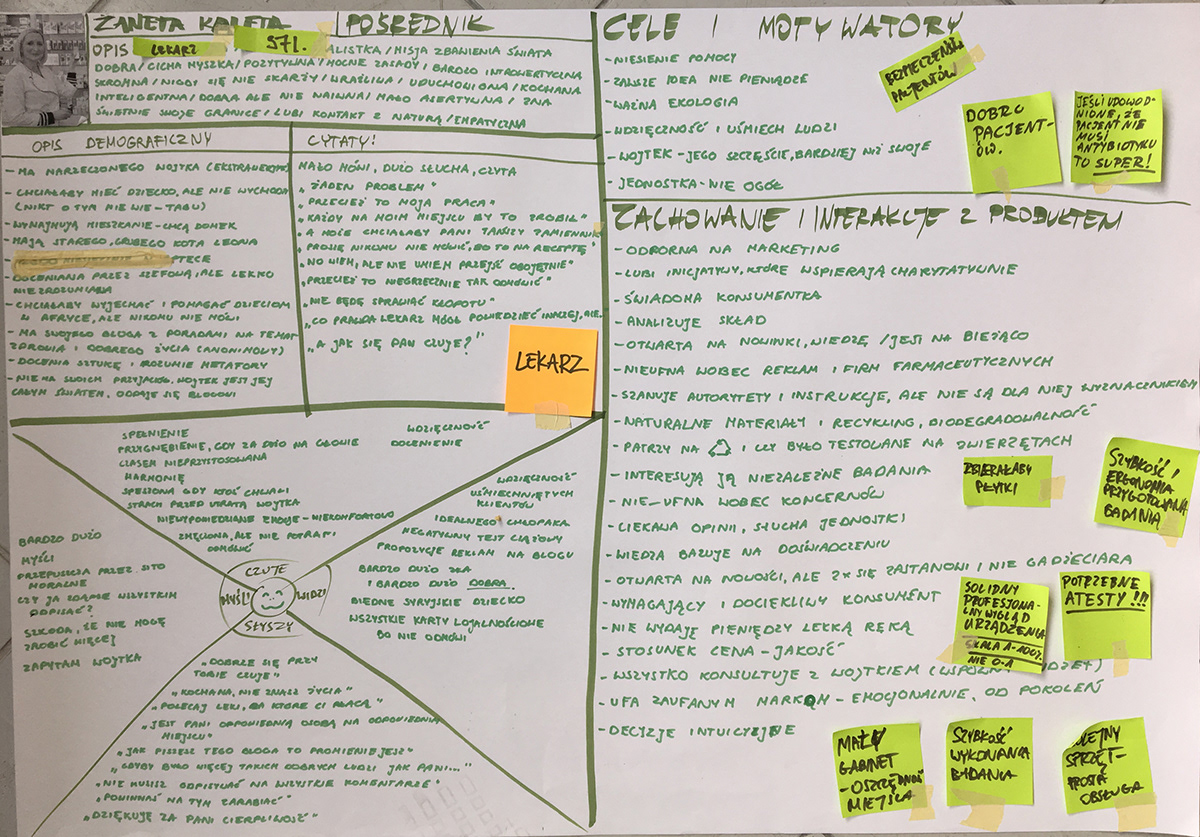 ŻANETA KALETA | POŚREDNIK
OPIS LEKARZ 57 l. ALISTKA / MISJA ZBAWIENIA ŚWIATA
DOBRA / CICHA MYSZKA / POZYTYWNA / MOCNE ZASADY / BARDZO INTROWERTYCZNA
SKROMNA / NIGDY SIĘ NIE SKARŻY / WRAŻLIWA / UDUCHOWIONA / KOCHANA
INTELIGENTNA / DOBRA ALE NIE NAIWNA / MAŁO ASERTYWNA / ZNA
ŚWIETNIE SWOJE GRANICE / LUBI KONTAKT Z NATURĄ / EMPATYCZNA
OPIS DEMOGRAFICZNY
- MA NARZECZONEGO WOJTKA (EKSTRAWERTYK)
- CHCIAŁABY MIEĆ DZIECKO, ALE NIE WYCHODZI
(NIKT O TYM NIE WIE - TABU)
- WYNAJMUJĄ MIESZKANIE - CHCĄ DOMEK
- MAJĄ STAREGO, GRUBEGO KOTA LEONA
DOCENIANA PRZEZ SZEFOWĄ, ALE LEKKO
NIEZROZUMIANA
- CHCIAŁABY WYJECHAĆ I POMAGAĆ DZIECIOM
W AFRYCE, ALE NIKOMU NIE MÓWI
- MA SWOJEGO BLOGA Z PORADAMI NA TEMAT
ZDROWIA I DOBREGO ŻYCIA (ANONIMOWY)
- DOCENIA SZTUKĘ I ROZUMIE METAFORY
- NIE MA SWOICH PRZYJACIÓŁ, WOJTEK JEST JEJ
CAŁYM ŚWIATEM, ODDAJE SIĘ BLOGOWI
CYTATY!
MAŁO MÓWI, DUŻO SŁUCHA, CZYTA
"ŻADEN PROBLEM"
"PRZECIEŻ TO MOJA PRACA"
"KAŻDY NA MOIM MIEJSCU BY TO ZROBIŁ"
"A MOŻE CHCIAŁABY PANI TAŃSZY ZAMIENNIK
PROSZĘ NIKOMU NIE MÓWIĆ, BO TO NA RECEPTĘ"
"NO WIEM, ALE NIE UMIEM PRZEJŚĆ OBOJĘTNIE"
"PRZECIEŻ TO NIEGRZECZNIE TAK ODMÓWIĆ"
"NIE BĘDĘ SPRAWIAĆ KŁOPOTU"
"CO PRAWDA LEKARZ MÓGŁ POWIEDZIEĆ INACZEJ, ALE..
"A JAK SIĘ PAN CZUJE?"
LEKARZ
SPEŁNIENIE
PRZYGNĘBIENIE, GDY ZA DUŻO NA GŁOWIE
CZASEM NIEPRZYSTOSOWANA
HARMONIĘ
SPESZONA GDY KTOŚ CHWALI
STRACH PRZED UTRATĄ WOJTKA
NIEWYPOWIEDZIANE EMOCJE - NIEKOMFORTOWO
ZMĘCZONA, ALE NIE POTRAFI
ODMÓWIĆ
WDZIĘCZNOŚĆ
DOCENIENIE
WDZIĘCZNOŚĆ
UŚMIECHNIĘTYCH
KLIENTÓW
IDEALNEGO CHŁOPAKA
NEGATYWNY TEST CIĄŻOWY
PROPOZYCJE REKLAM NA BLOGU
BARDZO DUŻO ZŁA
I BARDZO DUŻO DOBRA
BIEDNE SYRYJSKIE DZIECKO
WSZYSTKIE KARTY LOJALNOŚCIOWE
BO NIE ODMÓWI
CZUJE
MYŚLI
WIDZI
SŁYSZY
BARDZO DUŻO
MYŚLI
PRZEPUSZCZA PRZEZ SITO
MORALNE
CZY JA ZDĄŻĘ WSZYSTKIM
ODPISAĆ?
SZKODA, ŻE NIE MOGĘ
ZROBIĆ WIĘCEJ
ZAPYTAM WOJTKA
"DOBRZE SIĘ PRZY
TOBIE CZUJĘ"
"KOCHANA, NIE ZNASZ ŻYCIA"
"POLECAJ LEKI, ZA KTÓRE CI PŁACĄ"
"JEST PANI ODPOWIEDNIĄ OSOBĄ NA ODPOWIEDNIM
MIEJSCU"
"JAK PISZESZ TEGO BLOGA TO PROMIENIEJESZ"
"GDYBY BYŁO WIĘCEJ TAKICH DOBRYCH LUDZI JAK PANI..."
"NIE MUSISZ ODPISYWAĆ NA WSZYSTKIE KOMENTARZE"
"POWINNAŚ NA TYM ZARABIAĆ"
"DZIĘKUJĘ ZA PANI CIERPLIWOŚĆ"
CELE I MOTYWATORY
- NIESIENIE POMOCY
- ZAWSZE IDEA NIE PIENIĄDZE
- WAŻNA EKOLOGIA
- WDZIĘCZNOŚĆ I UŚMIECH LUDZI
- WOJTEK - JEGO SZCZĘŚCIE, BARDZIEJ NIŻ SWOJE
- JEDNOSTKA - NIE OGÓŁ
PACJENTÓW
DOBRO
PACJENT-
ÓW.
JEŚLI UDOWOD-
NIONE, ŻE
PACJENT NIE
MUSI
ANTYBIOTYKU
TO SUPER!
ZACHOWANIE I INTERAKCJE Z PRODUKTEM
- ODPORNA NA MARKETING
- LUBI INICJATYWY, KTÓRE WSPIERAJĄ CHARYTATYWNIE
- ŚWIADOMA KONSUMENTKA
- ANALIZUJE SKŁAD
- OTWARTA NA NOWINKI, WIEDZĘ / JEST NA BIEŻĄCO
- NIEUFNA WOBEC REKLAM I FIRM FARMACEUTYCZNYCH
- SZANUJE AUTORYTETY I INSTRUKCJE, ALE NIE SĄ DLA NIEJ WYZNACZNIKIEM
- NATURALNE MATERIAŁY I RECYKLING, BIODEGRADOWALNOŚĆ
- PATRZY NA ♺ I CZY BYŁO TESTOWANE NA ZWIERZĘTACH
- INTERESUJĄ JĄ NIEZALEŻNE BADANIA
- NIE_UFNA WOBEC KONCERNÓW
- CIEKAWA OPINII, SŁUCHA JEDNOSTKI
- WIEDZĄ BAZUJE NA DOŚWIADCZENIU
- OTWARTA NA NOWOŚCI, ALE 2x SIĘ ZASTANOWI I NIE GADŻECIARA
- WYMAGAJĄCY I DOCIEKLIWY KONSUMENT
- NIE WYDAJE PIENIĘDZY LEKKĄ RĘKĄ
- STOSUNEK CENA - JAKOŚĆ
- WSZYSTKO KONSULTUJE Z WOJTKIEM (WSPÓLNY DŻET)
- UFA ZAUFANYM MARKOM - EMOCJONALNIE, OD POKOLEŃ
- DECYZJE INTUICYJNE
ZBIERAŁABY
PŁYTKI
SZYBKOŚĆ I
ERGONOMIA
PRZYGOTOWANIA
BADANIA
SOLIDNY
PROFESJONA-
LNY WYGLĄD
URZĄDZENIA
SKALA 1-100%
NIE 0-1
POTRZEBNE
ATESTY !!!
MAŁY
GABINET
- OSZCZĘDNOŚĆ
MIEJSCA
SZYBKOŚĆ
WYKONANIA
BADANIA
SPRZĘT -
PROSTA
OBSŁUGA